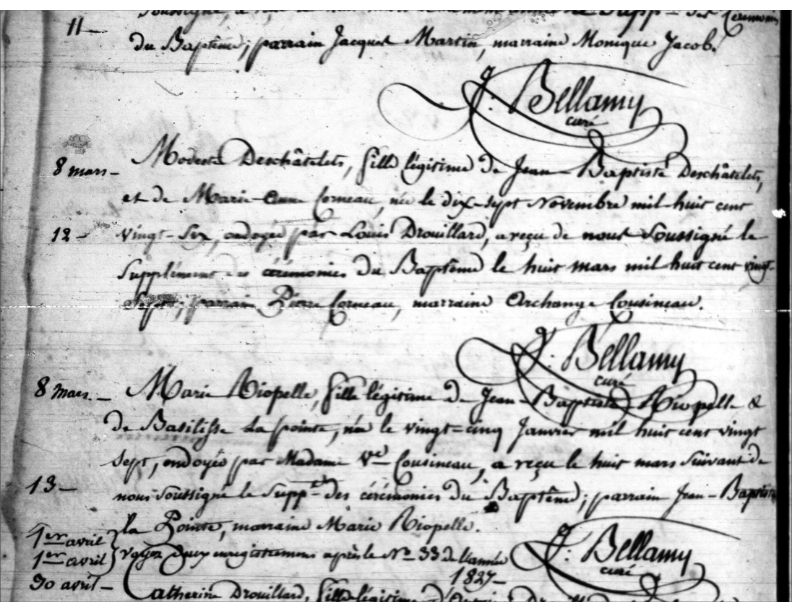 11 –
du Baptême; parrain Jacques Martin, marraine Monique Jacob.
J. Bellamy
curé
8 mars – Modeste Deschâtelets, fille légitime de Jean-Baptiste Deschâtelets,
et de Marie-Anne Corneau, née le dix-sept Novembre mil huit cent
12 – vingt-six, ondoyée par Louis Drouillard, a reçu de nous soussigné le
Supplément des cérémonies du Baptême le huit mars mil huit cent vingt-
sept; parrain Pierre Corneau, marraine Archange Cousineau.
J. Bellamy
curé
8 mars – Marie Riopelle, fille légitime de Jean-Baptiste Riopelle &
de Basilisse La pointe, née le vingt-cinq Janvier mil huit cent vingt
sept, ondoyée par Madame Ve Cousineau, a reçu le huit mars suivant de
13 – nous soussigné le Suppt des cérémonies du Baptême; parrain Jean-Baptiste
la Pointe, marraine Marie Riopelle.
1er avril
1er avril } Voyez deux enregistremens après le No 33 de l'année
1827 –
J. Bellamy
curé
30 avril – Catherine Drouillard, fille légitime